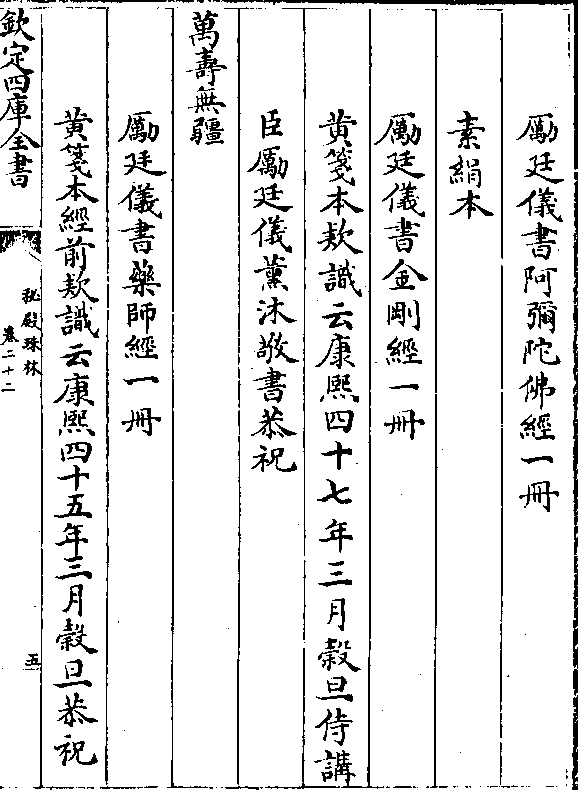 勵廷儀書阿彌陀佛經一冊
素絹本
勵廷儀書金剛經一冊
黄箋本欵識云康熙四十七年三月穀旦侍講
臣勵廷儀薰沐敬書恭祝
萬壽無疆
勵廷儀書藥師經一冊
黄箋本經前欵識云康熙四十五年三月穀旦恭祝
欽定四庫全書
秘殿珠林
卷二十二
五